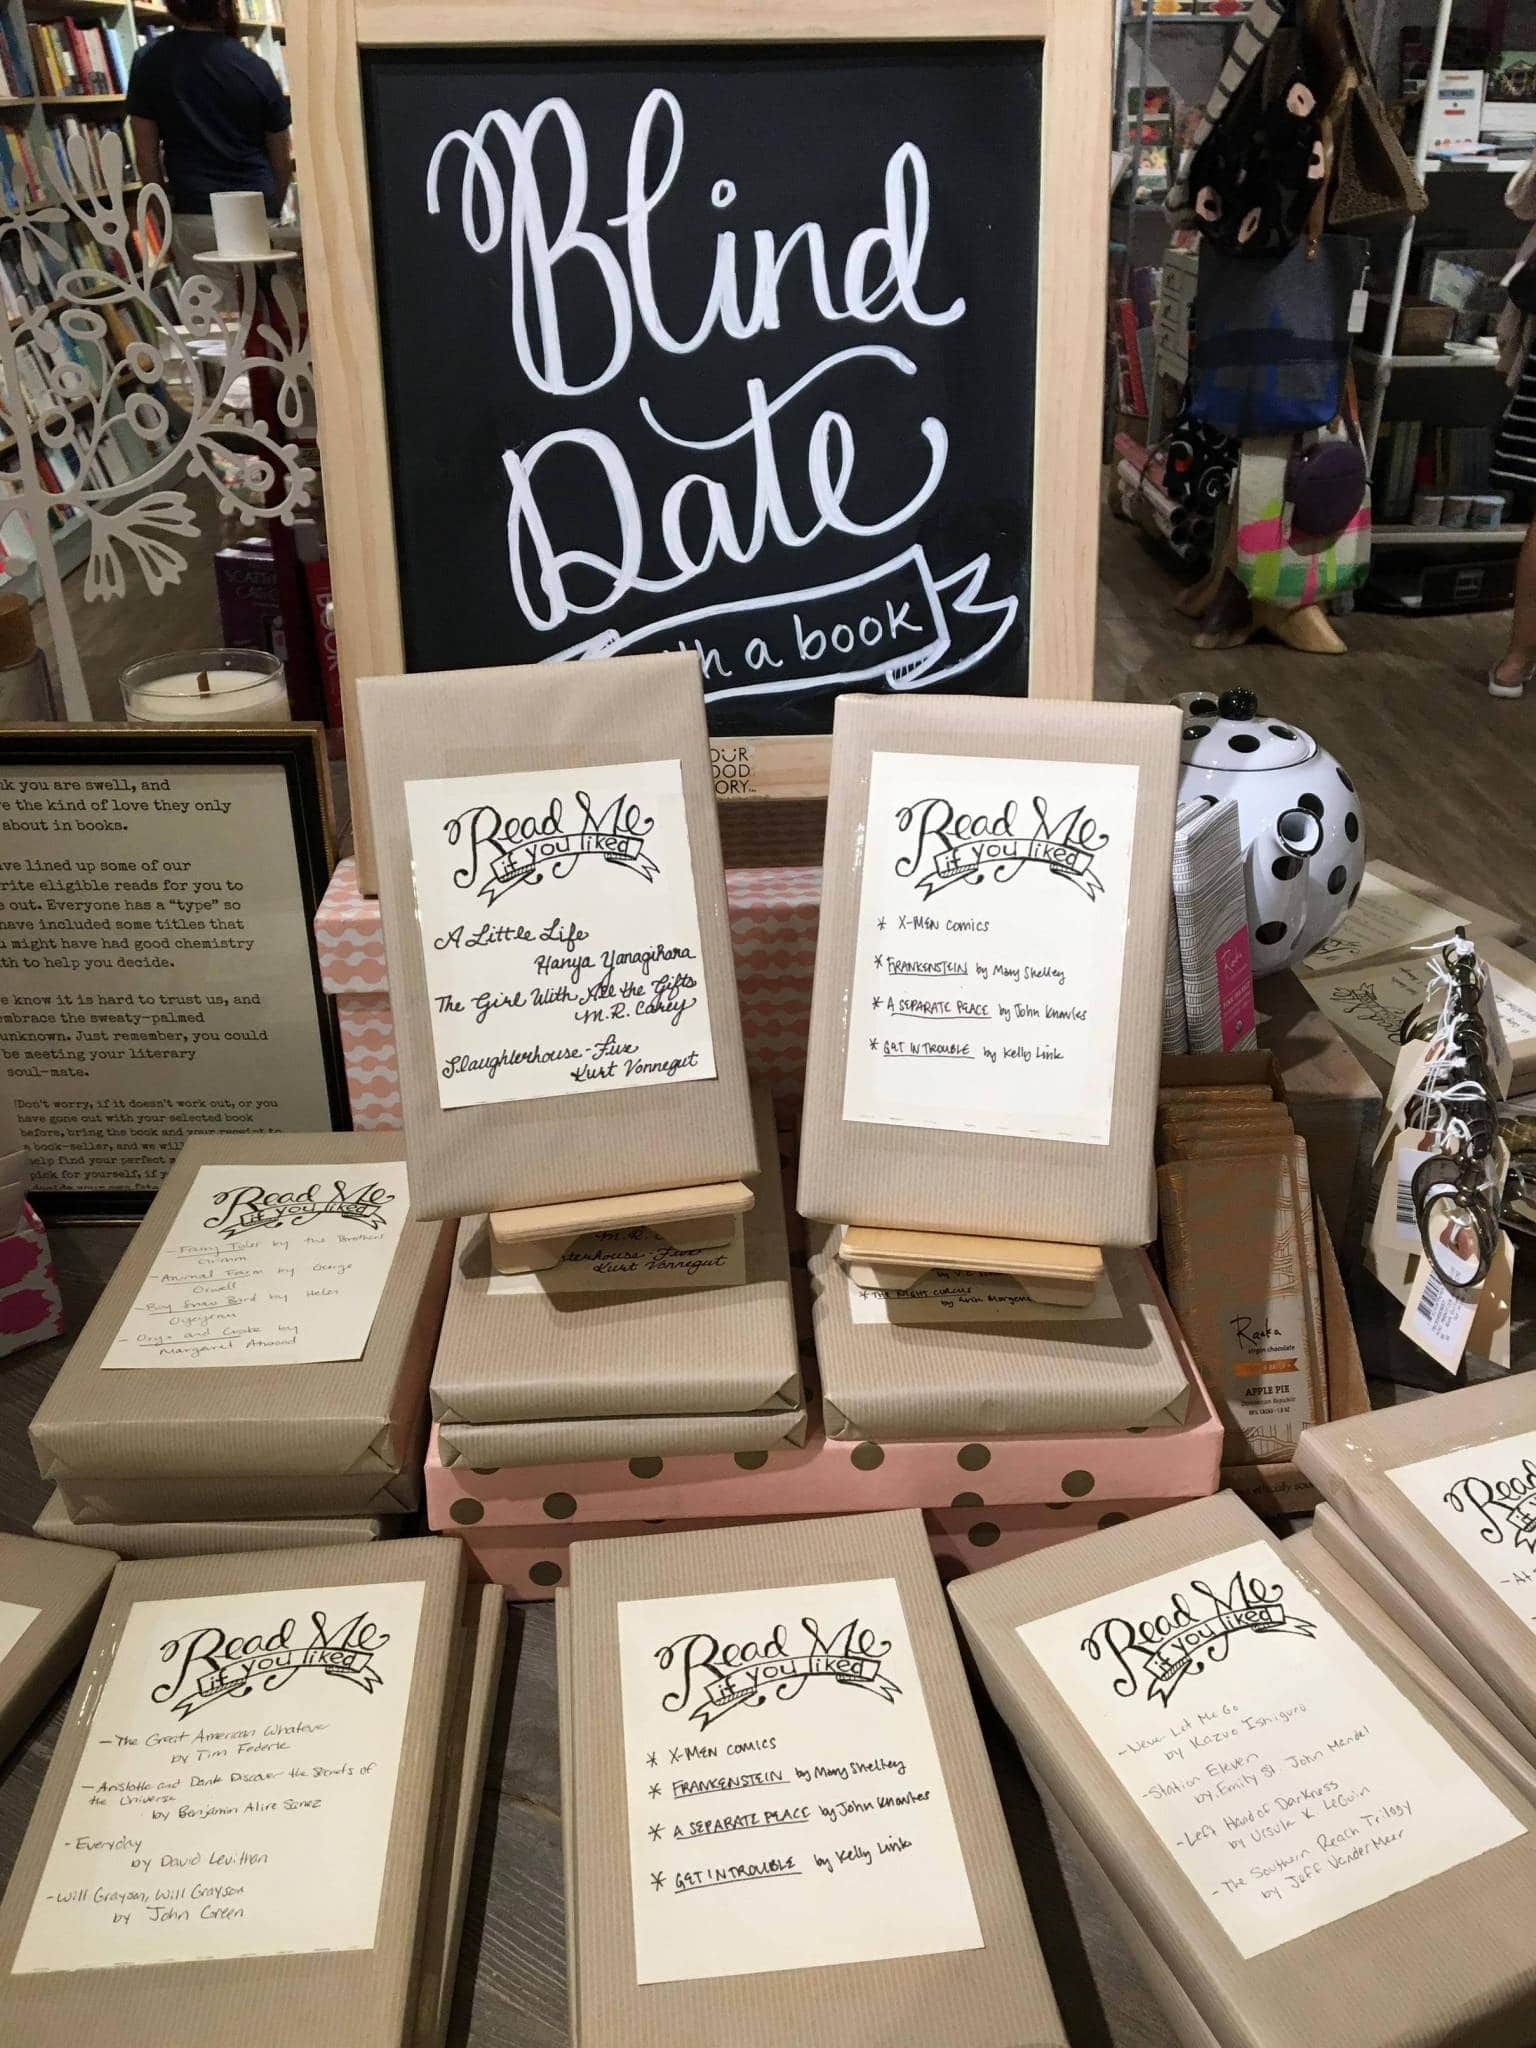 Blind
Date
with a book
OUR
OOD
ORY
nk you are swell, and
e the kind of love they only
about in books.
ave lined up some of our
rite eligible reads for you to
e out. Everyone has a "type" so
have included some titles that
u might have had good chemistry
th to help you decide.
e know it is hard to trust us, and
embrace the sweaty-palmed
unknown. Just remember, you could
be meeting your literary
soul-mate.
Don't worry, if it doesn't work out, or you
have gone out with your selected book
before, bring the book and your receipt to
a book-seller, and we will
help find your perfect
pick for yourself, if
Read Me
if you liked
A Little Life
Hanya Yanagihara
The Girl With All the Gifts
M.R. Carey
Slaughterhouse-Five
Kurt Vonnegut
Read Me
if you liked
* X-MEN comics
* FRANKENSTEIN by Mary Shelley
* A SEPARATE PEACE by John Knowles
* GET IN TROUBLE by Kelly Link
Read Me
if you liked
- Fairy Tales by the Brothers
Grimm
- Animal Farm by George
Orwell
- Boy Snow Bird by Helen
Oyeyemi
- Oryx and Crake by
Margaret Atwood
M.R.
terhouse-Five
Kurt Vonnegut
* THE NIGHT CIRCUS
by Erin Morgens
Raaka
virgin chocolate
APPLE PIE
Dominican Republic
Read Me
if you liked
- The Great American Whatever
by Tim Federle
- Aristotle and Dante Discover the Secrets of
the Universe
by Benjamin Alire Saenz
- Everyday
by David Levithan
- Will Grayson, Will Grayson
by John Green
Read Me
if you liked
* X-MEN COMICS
* FRANKENSTEIN by Mary Shelley
* A SEPARATE PEACE by John Knowles
* GET IN TROUBLE by Kelly Link
Read Me
if you liked
- Never Let Me Go
by Kazuo Ishiguro
- Station Eleven
by Emily St. John Mandel
- Left Hand of Darkness
by Ursula K. LeGuin
- The Southern Reach Trilogy
by Jeff VanderMeer
Read